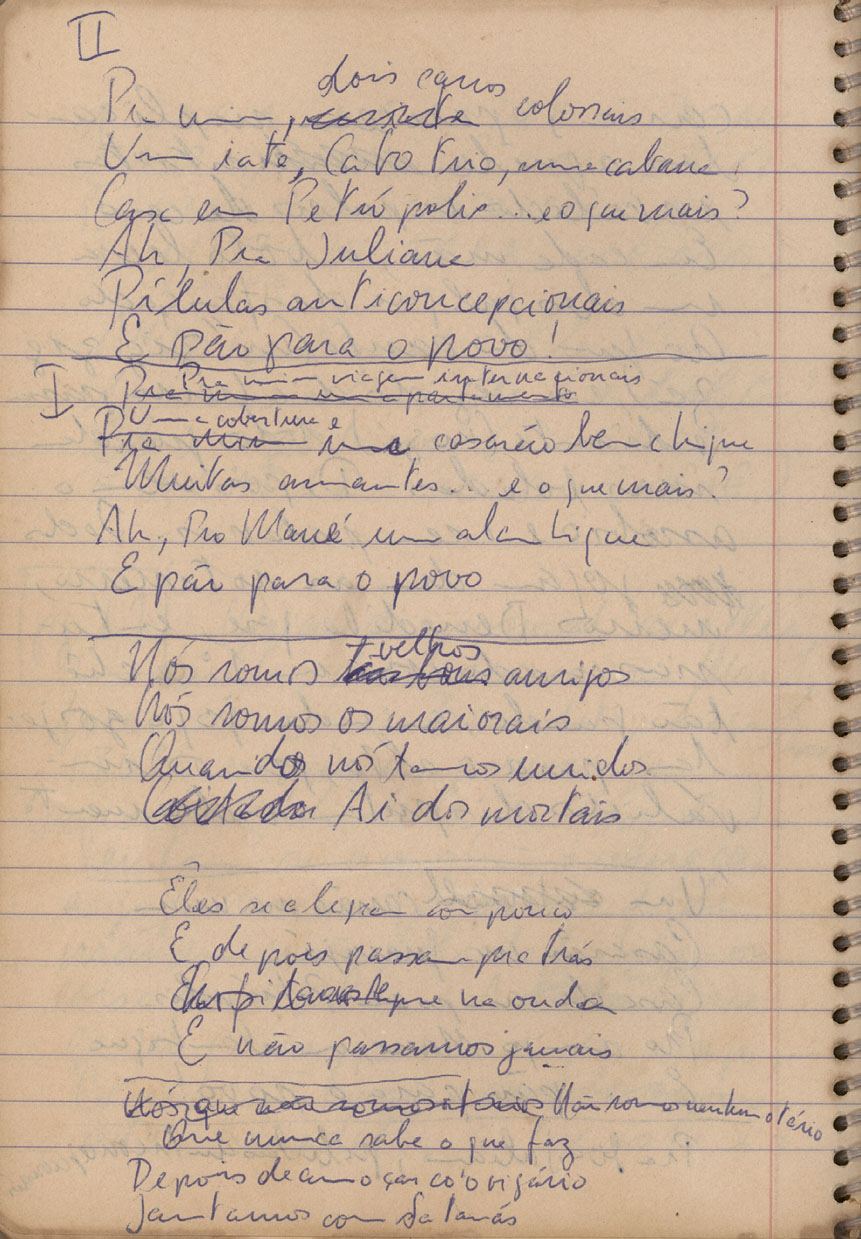 II
dois carros
Pra mim, colossais
Um iate, Cabo Frio, uma cabana
Casa em Petrópolis... e o que mais?
Ah, Pra Juliana
Pílulas anticoncepcionais
E pão para o povo!
Pra mim viagem internacionais
I Pra mim um apartamento
Uma cobertura e
Pra mim um casarão bem chique
Muitas amantes... e o que mais?
Ah, Pro Mané um alambique
E pão para o povo
velhos
Nós somos amigos
Nós somos os maiorais
Quando nós tamos unidos
Ai dos mortais
Êles se alegram com pouco
E depois passam pra trás
na onda
E não passamos jamais
Nós que não somos otários Não somos nenhum otário
Que nunca sabe o que faz
Depois de almoçar co'o vigário
Jantamos com Satanás